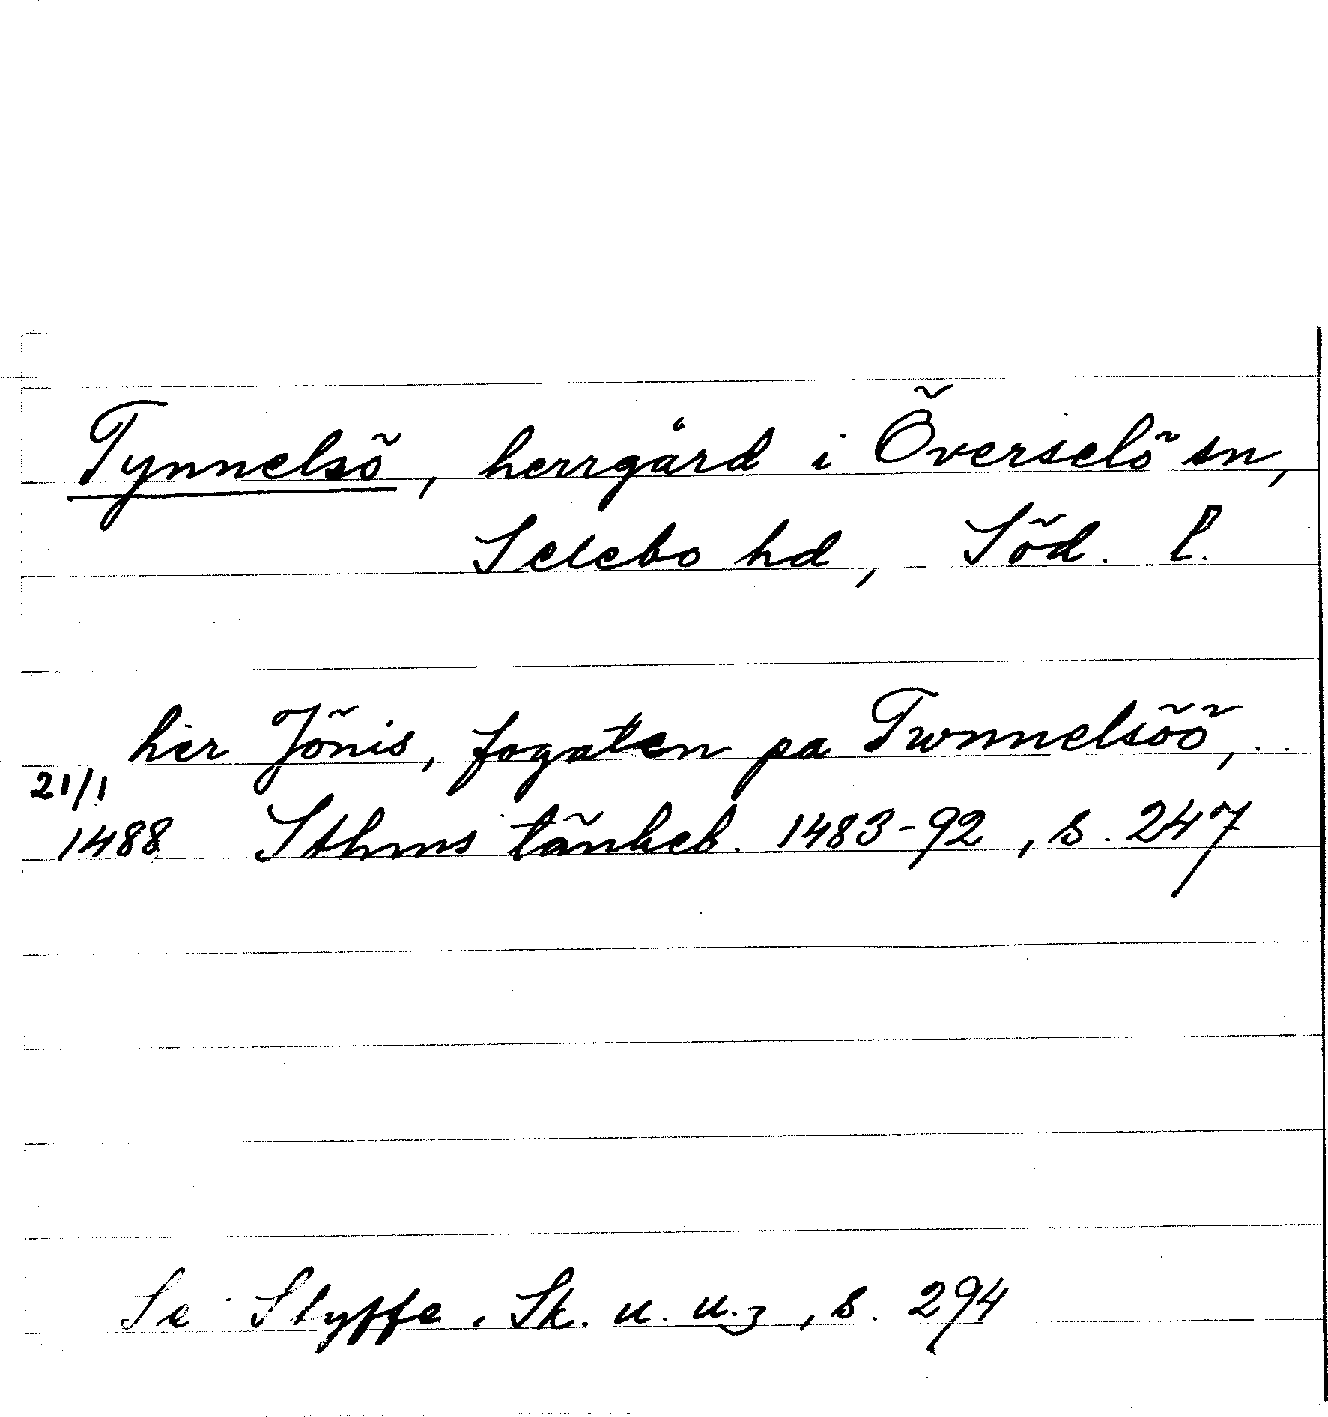 Tynnelsö, herrgård i Överselö sn,
Selebo hd, Söd. l.
her Jönis, fogaten pa Twnnelsöö, ..
21/1
1488 Sthms tänkeb. 1483-92, s. 247
Se Styffe, Sk. u. u. 3, s. 294